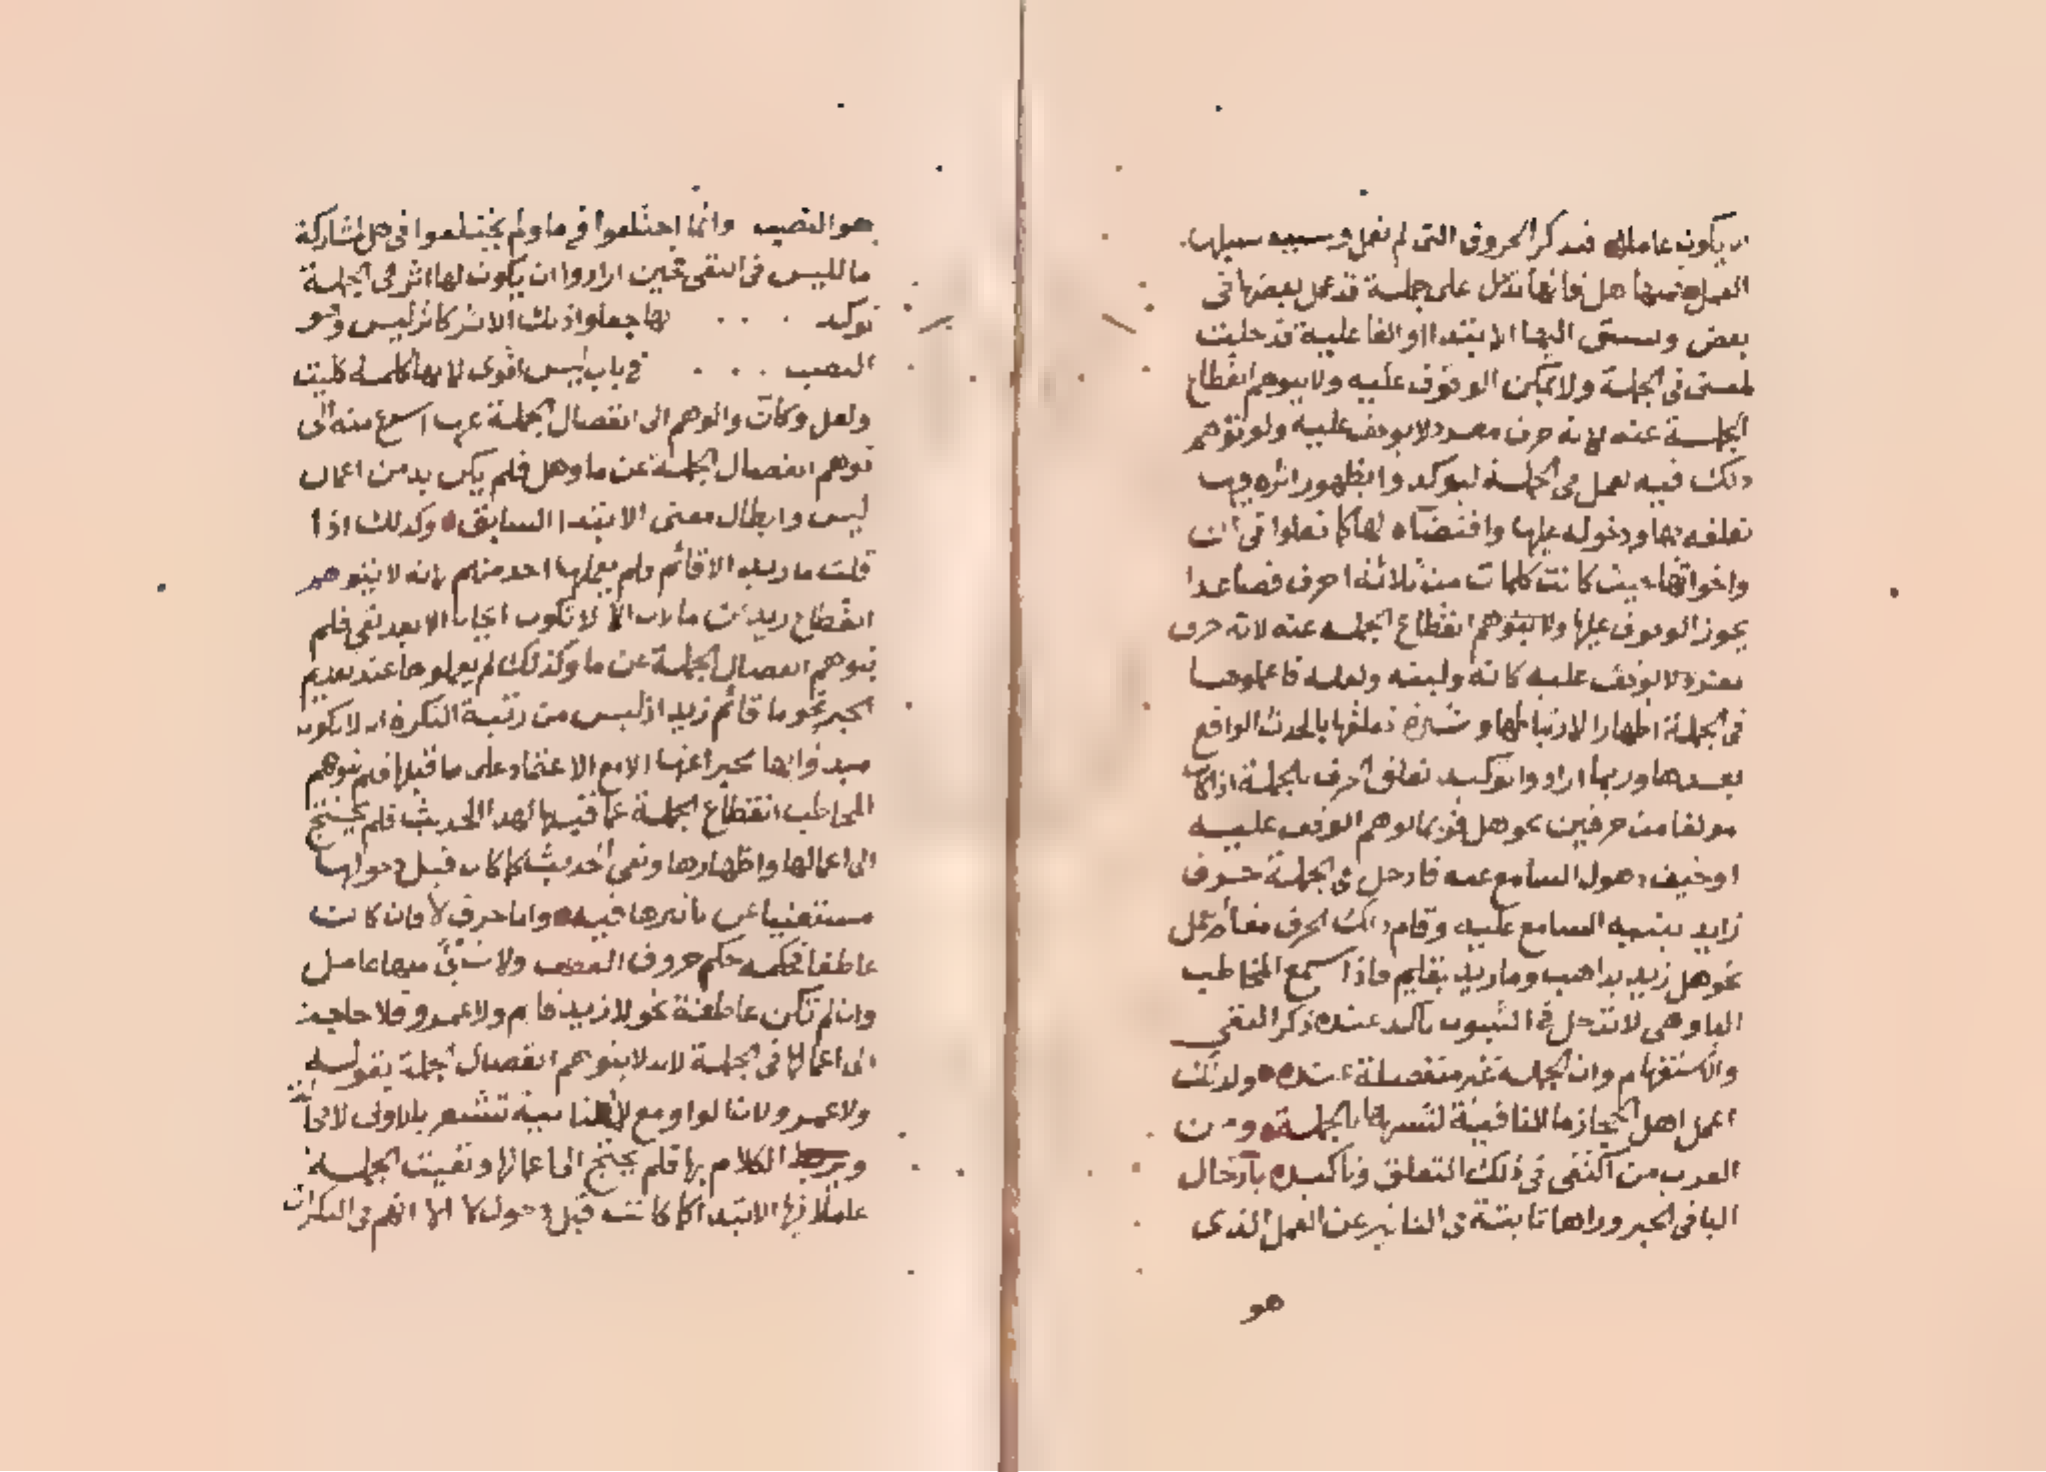 ان يكون عاملا فنذكر الحروف التي لم تعمل وسببه سبيلها
العمل فمنها هل فانها تدخل على جملة قد عمل بعضها في
بعض وسبق اليها الابتدا او الفاعلية فدخلت
لمعنى في الجملة ولا يمكن الوقوف عليه ولا يتوهم انقطاع
الجملة عنه لانه حرف مفرد لا يوقف عليه ولو توهم
ذلك فيه لعمل في الجملة ليوكدوا بظهور اثره فيها
تعلقه بها ودخوله عليها واقتضاه لها كما فعلوا في ان
واخواتها حيث كانت كلمات من ثلاثة احرف فصاعدا
يجوز الوقوف عليها ولا يتوهم انقطاع الجملة عنه لانه حرف
مفرد لا يوقف عليه كانه وليته ولعله فاعملوها
في الجملة اظهارا لارتباطها وشدة تعلقها بالحدث الواقع
بعدها وربما ارادوا توكيد تعلق الحرف بالجملة اذا كان
مولفا من حرفين نحو هل فربما توهم الوقف عليه
او خيف ذهول السامع عنه فادخل في الجملة حرف
زايد ينبه السامع عليه وقام ذلك الحرف مقام العمل
نحو هل زيد بذاهب وما زيد بقايم فاذا سمع المخاطب
البا وهي لا تدخل في الثبوت تاكد عنده ذكر النفي
والاستفهام وان الجملة غير منفصلة عنده ولذلك
اعمل اهل الحجاز ما النافية لشبهها بالجملة ومن
العرب من اكتفى في ذلك التعلق وتاكيده بادخال
البا في الخبر وراها نابتة في التاثير عن العمل الذي
هو
هو النصب وانما اختلفوا في ما ولم يختلفوا في هل لمشاركة
ما لليس في النفي فحين ارادوا ان يكون لها اثر في الجملة
توكيد . . . بها جعلوا ذلك الاثر كاثر ليس وهو
النصب . . . في باب ليس اقوى لانها كلمة كليت
ولعل وكان والوهم الى انفصال الجملة عنها اسرع منه الى
توهم انفصال الجملة عن ما وهل فلم يكن بد من اعمال
ليس وابطال معنى الابتدا السابق وكذلك اذا
قلت ما زيد الا قائم ولم يعملها احد منهم لانه لا يتوهم
انقطاع زيد عن ما لان الا لا تكون ايجابا الا بعد نفي فلم
يتوهم انفصال الجملة عن ما وكذلك لم يعملوها عند تقديم
الخبر نحو ما قائم زيد اذ ليس من رتبة النكرة ان لا يكون
مبدوا بها مخبرا عنها الا مع الاعتماد على ما قبلها فلم يتوهم
المخاطب انقطاع الجملة عما قبلها لهذا الحديث فلم يحتج
الى اعمالها واظهارها وبقي الحديث كما كان قبل دخولها
مستغنيا عن تاثيرها فيه واما حرف لا فان كانت
عاطفا فحكمه حكم حروف العطف ولا شي منها عامل
وان لم تكن عاطفة نحو لا زيد قايم ولا عمرو فلا حاجة
الى اعمالها في الجملة لانه لا يتوهم انفصال الجملة بقوله
ولا عمرو ولان الواو مع لا الثانية تشعر بالاولى لا محالة
ويربط الكلام بها فلم يحتج الى اعمالها وبقيت الجملة
عاملا فيها الابتدا كما كانت قبل دخول لا الا انهم في النكرات